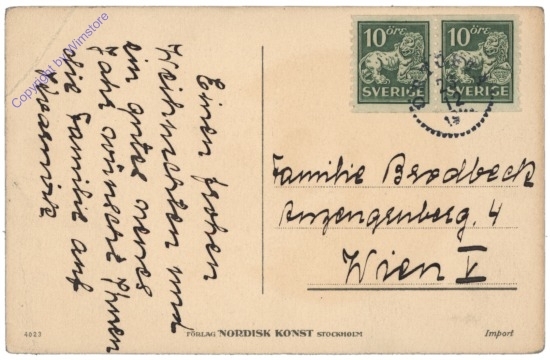 Einen frohen
Weihnachten und
ein gutes neues
Jahr wünscht Ihnen
die Familie auf
10 ÖRE
SVERIGE
10 ÖRE
SVERIGE
Familie Brodbeck
Anzengruberg. 4
Wien V
4023
FÖRLAG NORDISK KONST STOCKHOLM
Import
Copyright by Wimstore